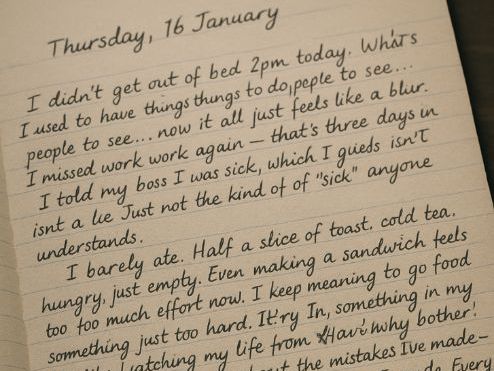 Thursday, 16 January
I didn't get out of bed 2pm today. Whats
I used to have things things to do,peple to see...
people to see... now it all just feels like a blur.
I missed work work again — that's three days in
I told my boss I was sick, which I gueds isn't
isnt a lie Just not the kind of of "sick" anyone
understands.
I barely ate. Half a slice of toast. cold tea.
hungry, just empty. Even making a sandwich feels
too too much effort now. I keep meaning to go food
something just too hard. It!ry In, something in my
watching my life from why bother!
the mistakes I've made—
Every